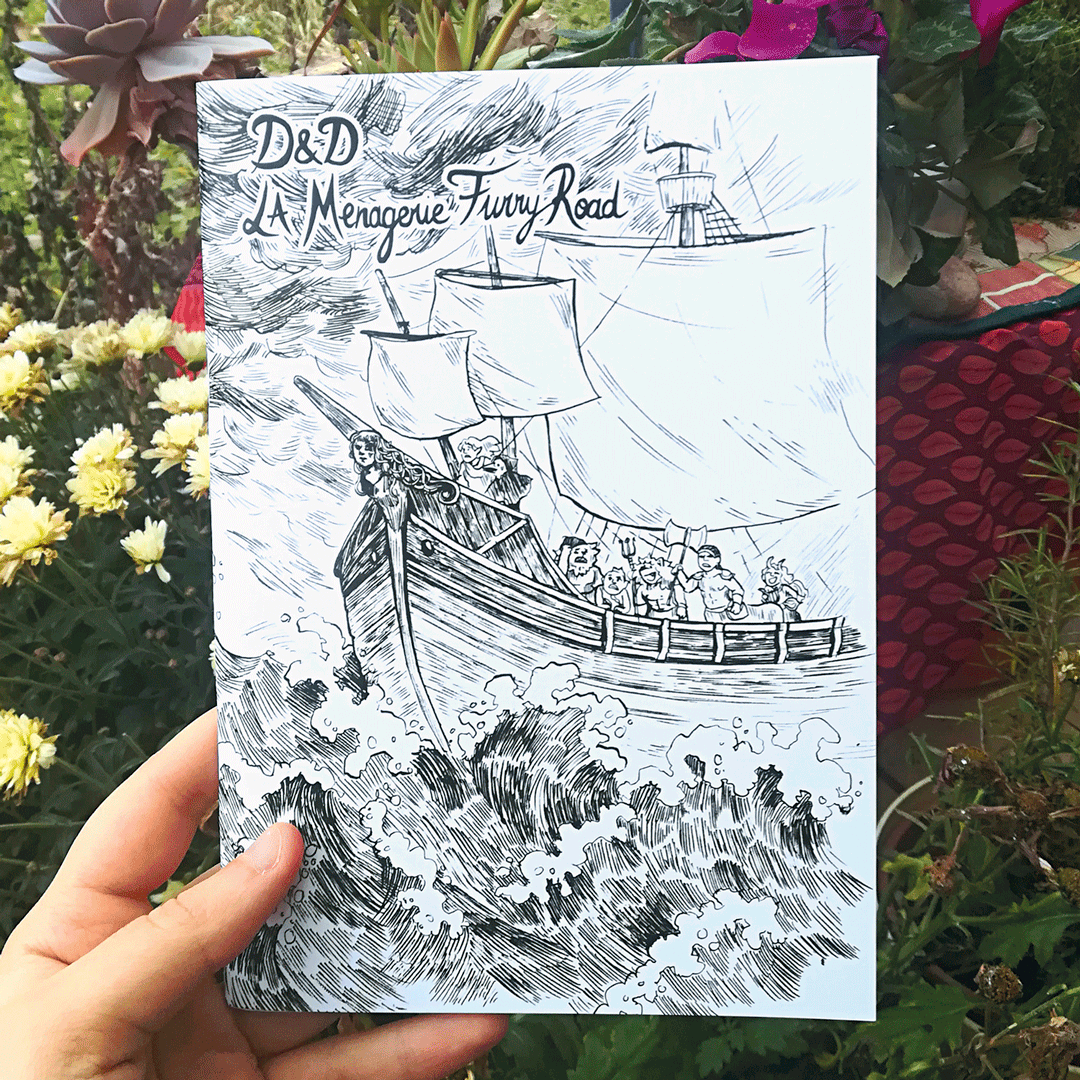 D&D
LA Menagerie Furry Road